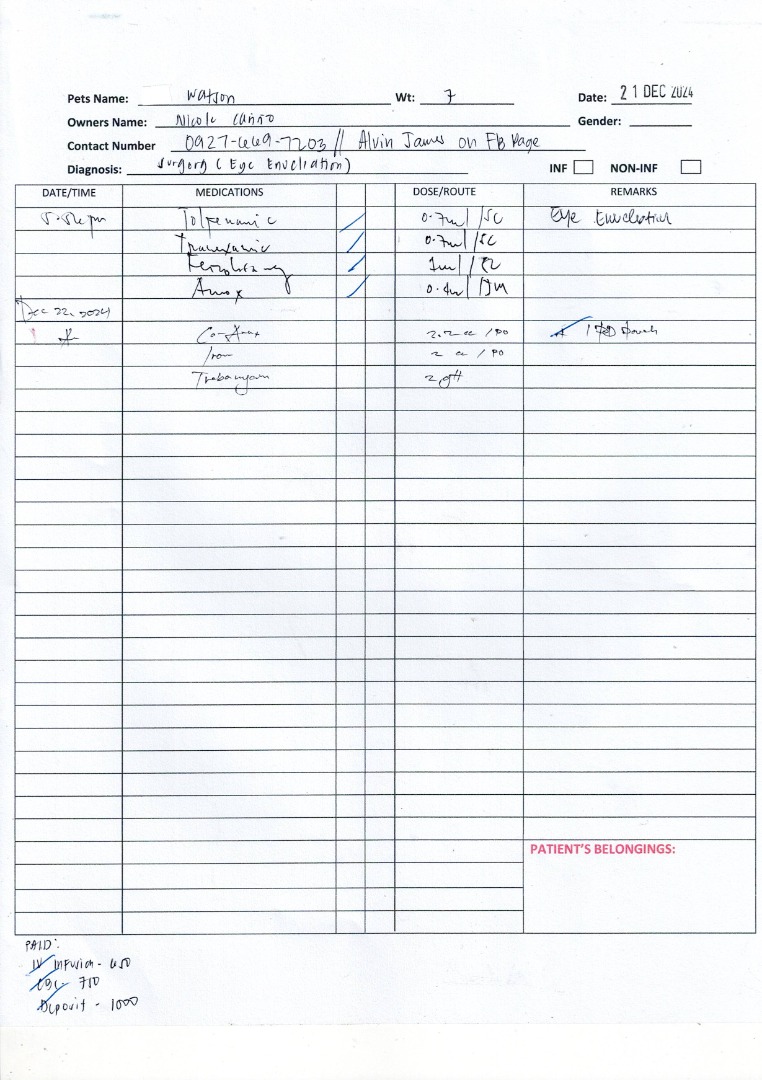 Pets Name: Watson Wt: 7 Date: 21 DEC 2024
Owners Name: Nicole Gender:
Contact Number 0927-669-7203 // Alvin James on FB Page
Diagnosis: Surgery (Eye Enucliation) INF NON-INF
DATE/TIME MEDICATIONS DOSE/ROUTE REMARKS
Tolfenamic 0.7ml /SC Eye Enucleation
Tranexamic 0.7ml /SC
1ml /
Amox 0.4ml /IM
Dec 22, 2024
Co-Amox 2.2 cc / PO
Iron 2 cc / PO
2 gtt
PATIENT'S BELONGINGS:
PAID:
IV Infusion - 650
CBC - 750
Deposit - 1000